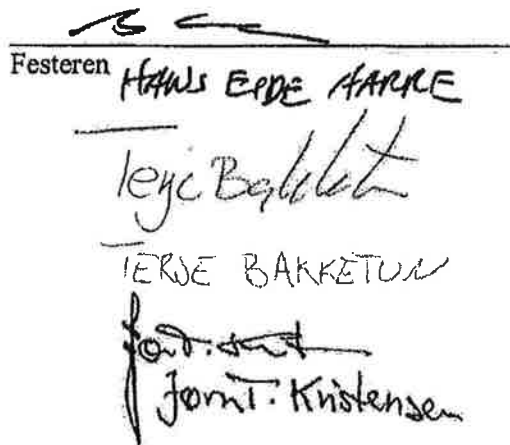 Festeren HANS EPDE AARRE
Terje Bakket
TERJE BAKKETUN
Jørn T. Kristensen